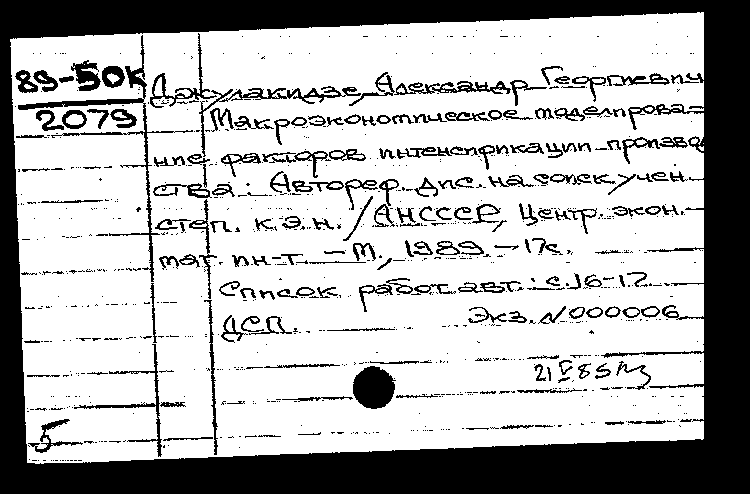 89-50К
2079
Джулакидзе, Александр Георгиевич
Макроэкономическое моделирова=
ние факторов интенсификации производ
ства: Автореф. дис. на соиск. учен.
степ. к.э.н. / АН СССР, Центр. экон.-
мат. ин-т. – М., 1989. – 17с.
Список работ авт.: с.16-17
ДСП. Экз. N 000006
21 V 89
5